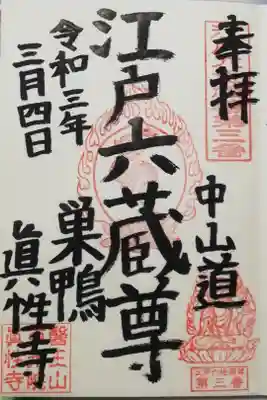 奉拝
中山道
江戸六蔵尊
巣鴨
眞性寺
令和三年
三月四日
第三番
醫王山
眞性寺